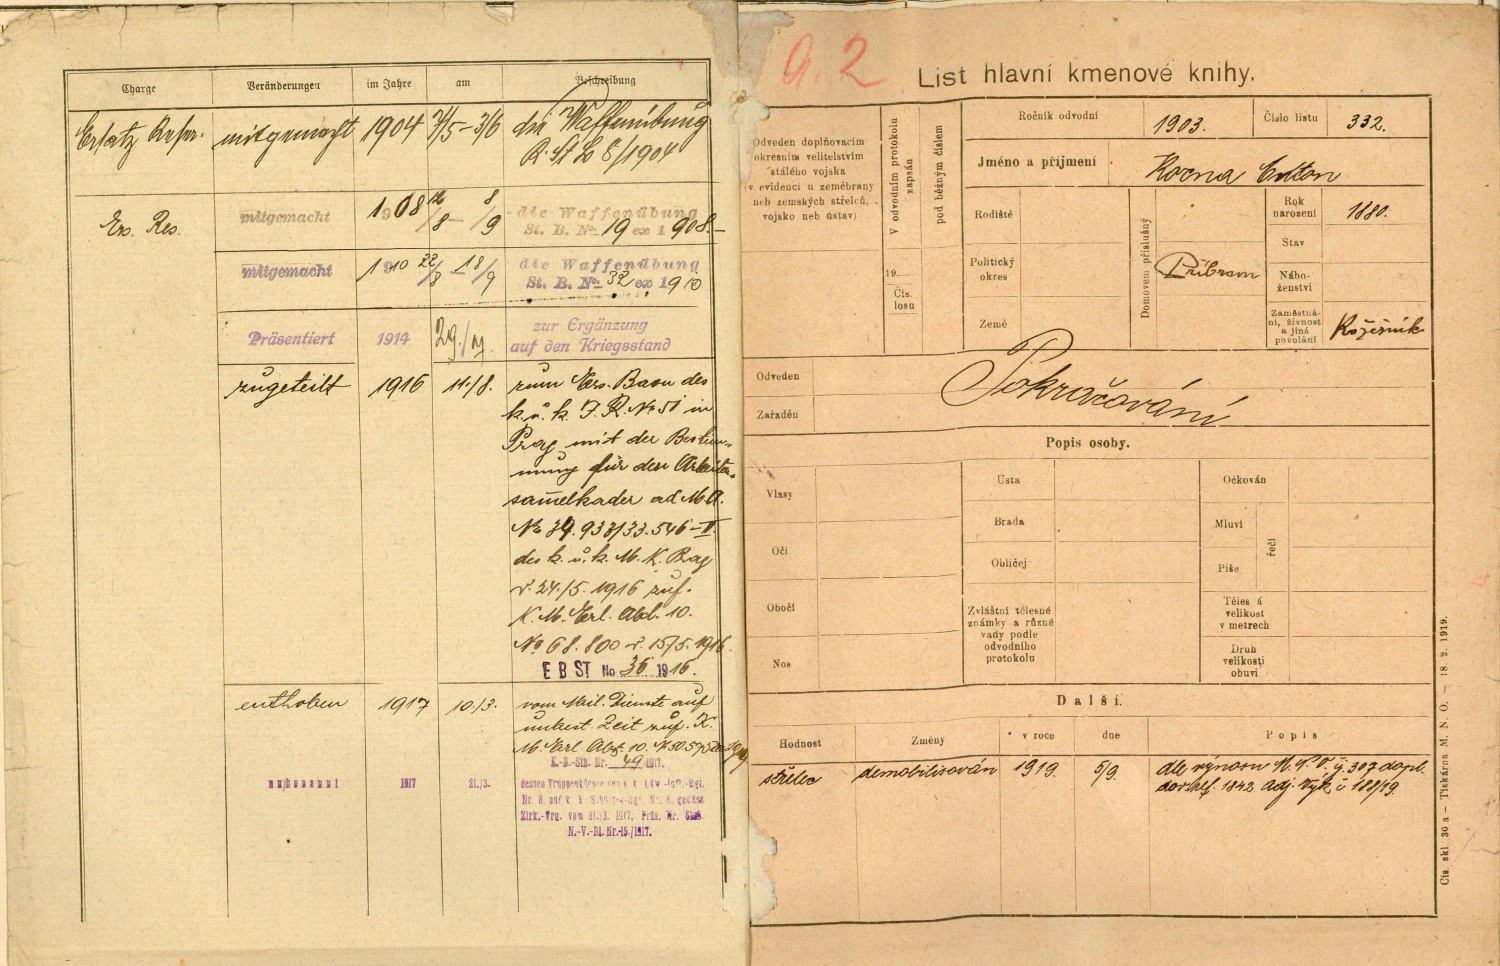 Charge Veränderungen im Jahre am Beschreibung
Ersatz Reser. mitgemacht 1904 7/5 – 3/6 die Waffenübung
R. St Lo 8/1904
Ers. Res. mitgemacht 1908 12/8 – 8/9 die Waffenübung
St. B. No 19 ex 1908.–
mitgemacht 1910 22/8 – 18/9 die Waffenübung
St. B. No. 32 ex 1910
Präsentiert 1914 29./7. zur Ergänzung
auf den Kriegsstand
zugeteilt 1916 11./8. zum Ers. Baon des
k. u. k. I. R. No 51 in
Prag mit der Bestim-
mung für den Arbeiter-
sam̄elkader ad M.A.
No 34.933/33.546–II.
des k. u. k. M. K. Prag
v. 24./5. 1916 zuf.
K. M. Erl. Abt. 10.
No 68.800 v. 15/5. 1916.
E B ST No 35 1916.
enthoben 1917 10./3. vom Mil. Dienste auf
unbest. Zeit zuf. K.
M. Erl. Abt. 10.
E.-B.-Stb. Nr. 49/1917.
1917 21./3. dessen Truppenkörper von k. k. Ldw.-Inft.-Rgt.
Nr. 8. auf k. k. Schützen-Rgt. Nr. 8. gemäss
Zirk.-Vrg. vom 21./3. 1917, Präs. Nr.
N.-V.-Bl. Nr. 15./1917.
9.2
List hlavní kmenové knihy.
Odveden doplňovacím
okresním velitelstvím
stálého vojska
(v evidenci u zeměbrany
neb zemských střelců,
vojsko neb ústav)
V odvodním protokolu
zapsán
pod běžným číslem
19.....
Čís.
losu
Ročník odvodní 1903. Číslo listu 332.
Jméno a příjmení Kocna Anton
Rodiště
Politický
okres
Země
Domovem příslušný
Příbram
Rok
narození 1880.
Stav
Nábo-
ženství
Zaměstná-
ní, živnost
a jiná
povolání
Kožešník
Odveden
Zařaděn
Pokračování
Popis osoby.
Vlasy
Oči
Obočí
Nos
Ústa
Brada
Obličej
Zvláštní tělesné
známky a různé
vady podle
odvodního
protokolu
Očkován
Mluví
Píše
řečí
Těles á
velikost
v metrech
Druh
velikosti
obuvi
Další.
Hodnost Změny v roce dne Popis
střelec demobilisován 1919. 5/9. dle výnosu M. N. O. č. 307 dopl.
1842 Adj. Výk. č 188/19
Čís. skl. 30 a — Tiskárna M. N. O. — 18. 2. 1919.